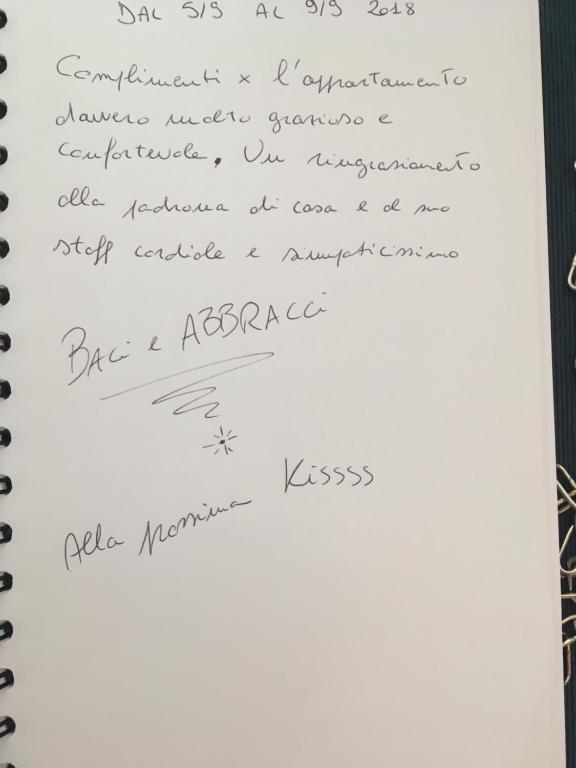 DAL 5/9 AL 9/9 2018
Complimenti x l'appartamento
davvero molto grazioso e
confortevole. Un ringraziamento
alla padrona di casa e al suo
staff cordiale e simpaticissimo
BACi e ABBRACCi
Kissss
Alla prossima